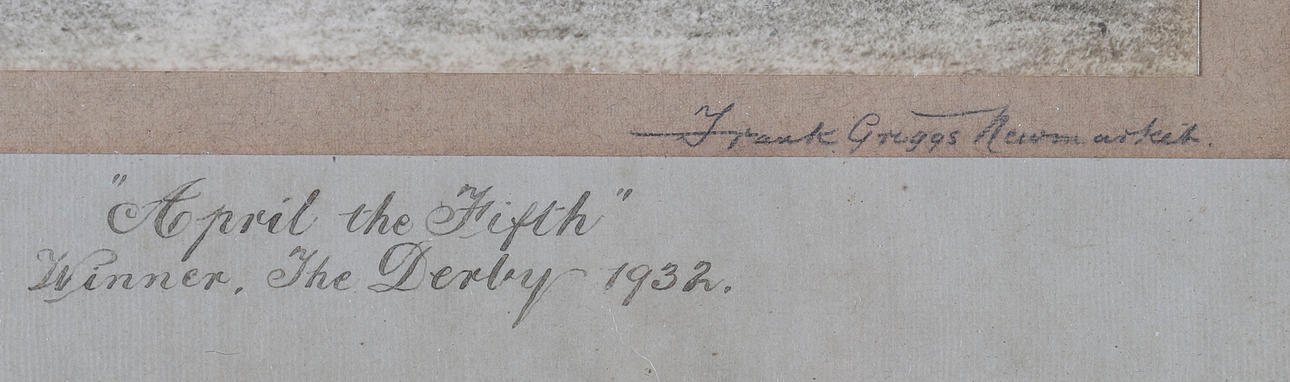 Frank Griggs Newmarket.
"April the Fifth"
Winner, The Derby 1932.